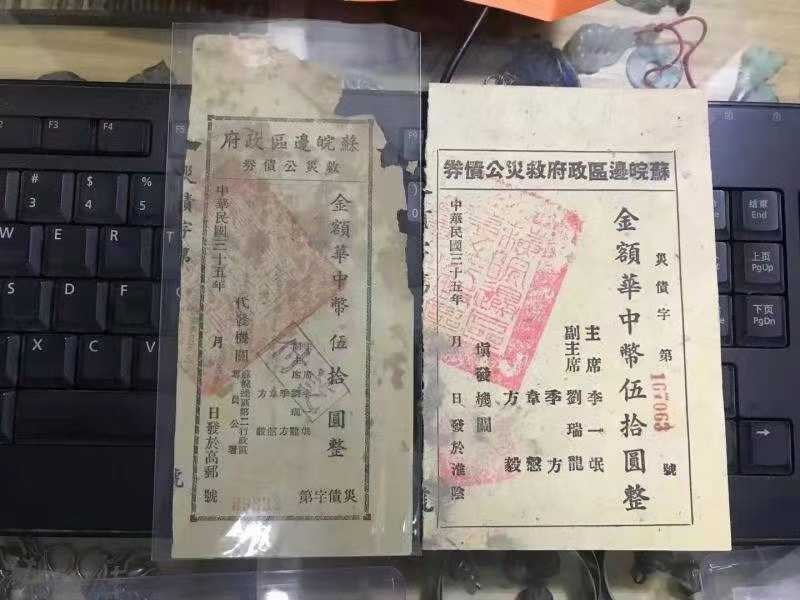 蘇皖邊區政府
救災公債券
金額華中幣伍拾圓整
災債字第
號
主席李一氓
副主席劉瑞龍
季方
韋慤
方毅
代發機關
蘇皖邊區第二行政區
專員公署
中華民國三十五年 月 日發於高郵
蘇皖邊區政府救災公債券
災債字第167063號
金額華中幣伍拾圓整
主席李一氓
副主席劉瑞龍
季方
韋慤
方毅
填發機關
中華民國三十五年 月 日發於淮陰
F3
F4
F5
#
3
$
4
%
5
)
0
W
E
R
S
D
F
X
C
V
结束
End
上页
PgUp
下页
PgDn